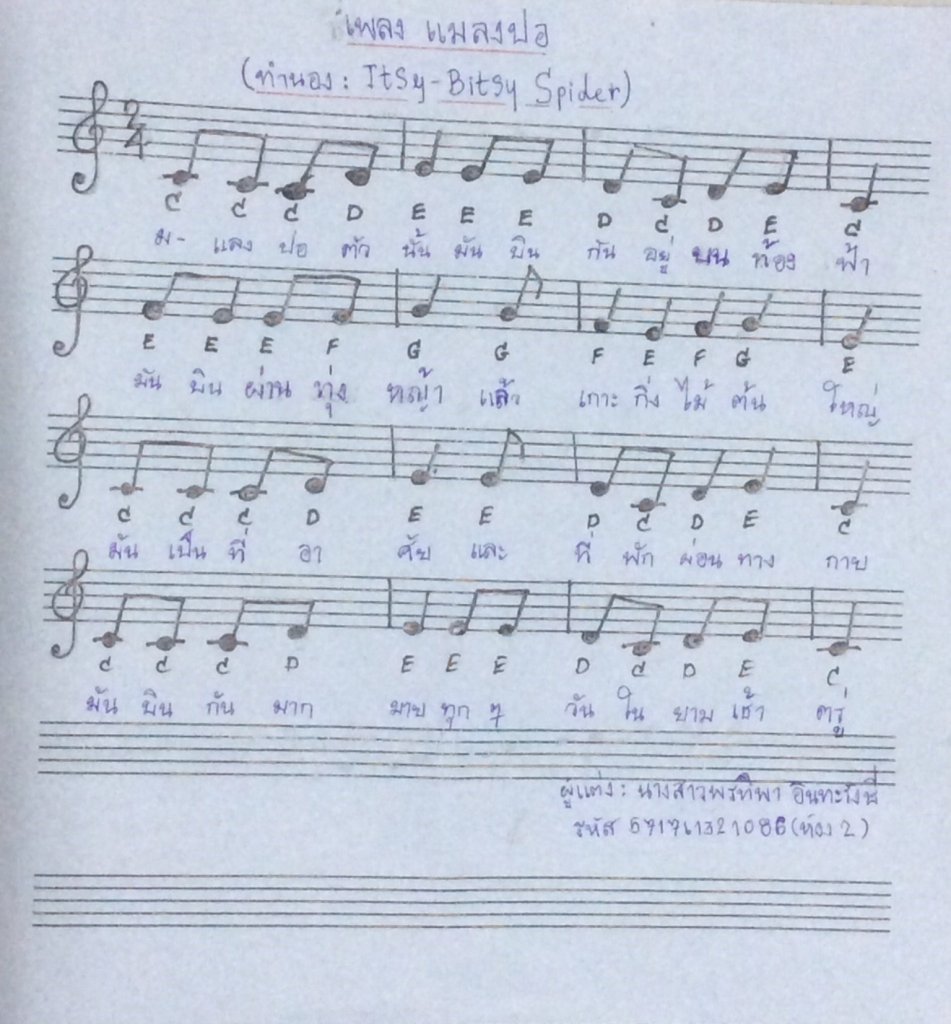 เพลง แมลงปอ
(ทำนอง : Itsy-Bitsy Spider)
2
4
C C C D E E E D C D E C
ม- แลง ปอ ตัว นั้น มัน บิน กัน อยู่ บน ท้อง ฟ้า
E E E F G G F E F G E
มัน บิน ผ่าน ทุ่ง หญ้า แล้ว เกาะ กิ่ง ไม้ ต้น ใหญ่
C C C D E E D C D E C
มัน เป็น ที่ อา ศัย และ ที่ พัก ผ่อน ทาง กาย
C C C D E E E D C D E C
มัน บิน กัน มาก มาย ทุก ๆ วัน ใน ยาม เช้า ตรู่
ผู้แต่ง : นางสาวพรทิพา อินทะรังษี
รหัส 57171321086 (ห้อง 2)